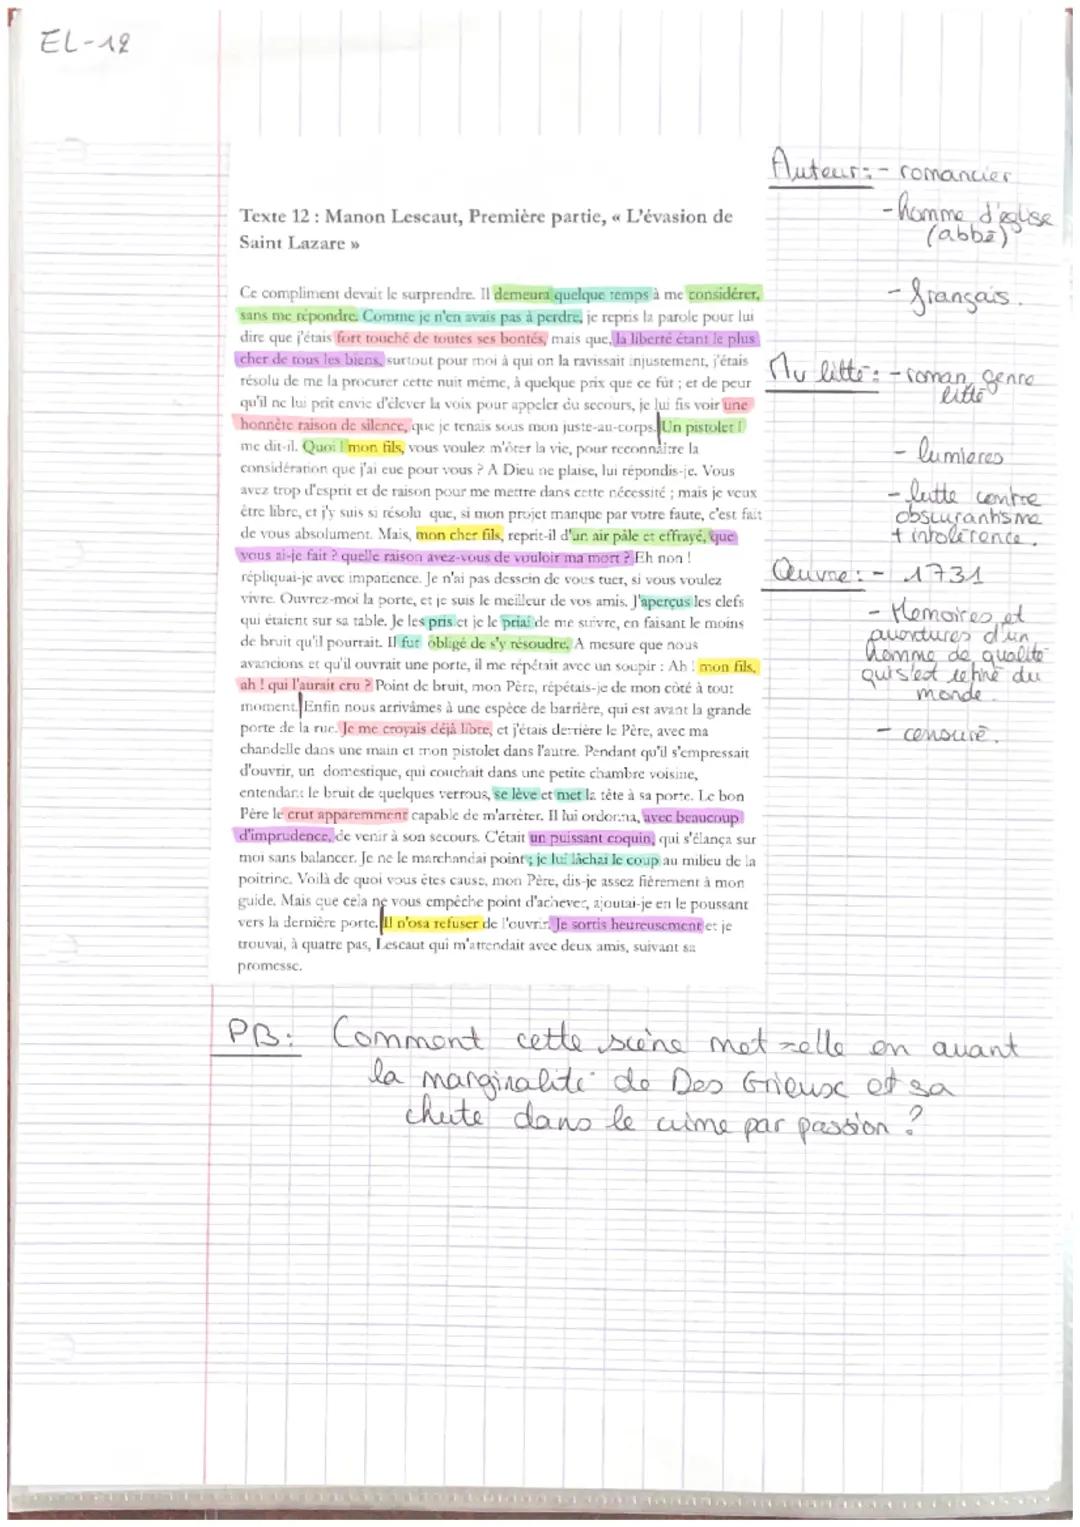 EL-12
Texte 12 : Manon Lescaut, Première partie, « L'évasion de
Saint Lazare »
Ce compliment devait le surprendre. Il demeura quelque temps à me considérer,
sans me répondre. Comme je n'en avais pas à perdre, je repris la parole pour lui
dire que j'étais fort touché de toutes ses bontés, mais que, la liberté étant le plus
cher de tous les biens, surtout pour moi à qui on la ravissait injustement, j'étais
résolu de me la procurer cette nuit même, à quelque prix que ce fût ; et de peur
qu'il ne lui prît envie d'élever la voix pour appeler du secours, je lui fis voir une
honnête raison de silence, que je tenais sous mon juste-au-corps. Un pistolet !
me dit-il. Quoi ! mon fils, vous voulez m'ôter la vie, pour reconnaître la
considération que j'ai eue pour vous ? A Dieu ne plaise, lui répondis-je. Vous
avez trop d'esprit et de raison pour me mettre dans cette nécessité ; mais je veux
être libre, et j'y suis si résolu que, si mon projet manque par votre faute, c'est fait
de vous absolument. Mais, mon cher fils, reprit-il d'un air pâle et effrayé, que
vous ai-je fait ? quelle raison avez-vous de vouloir ma mort ? Eh non !
répliquai-je avec impatience. Je n'ai pas dessein de vous tuer, si vous voulez
vivre. Ouvrez-moi la porte, et je suis le meilleur de vos amis. J'aperçus les clefs
qui étaient sur sa table. Je les pris et je le priai de me suivre, en faisant le moins
de bruit qu'il pourrait. Il fut obligé de s'y résoudre. A mesure que nous
avancions et qu'il ouvrait une porte, il me répétait avec un soupir : Ah ! mon fils,
ah ! qui l'aurait cru ? Point de bruit, mon Père, répétais-je de mon côté à tout
moment. Enfin nous arrivâmes à une espèce de barrière, qui est avant la grande
porte de la rue. Je me croyais déjà libre, et j'étais derrière le Père, avec ma
chandelle dans une main et mon pistolet dans l'autre. Pendant qu'il s'empressait
d'ouvrir, un domestique, qui couchait dans une petite chambre voisine,
entendant le bruit de quelques verrous, se lève et met la tête à sa porte. Le bon
Père le crut apparemment capable de m'arrêter. Il lui ordonna, avec beaucoup
d'imprudence, de venir à son secours. C'était un puissant coquin, qui s'élança sur
moi sans balancer. Je ne le marchandai point ; je lui lâchai le coup au milieu de la
poitrine. Voilà de quoi vous êtes cause, mon Père, dis-je assez fièrement à mon
guide. Mais que cela ne vous empêche point d'achever, ajoutai-je en le poussant
vers la dernière porte. Il n'osa refuser de l'ouvrir. Je sortis heureusement et je
trouvai, à quatre pas, Lescaut qui m'attendait avec deux amis, suivant sa
promesse.
Auteur : - romancier
- homme d'église
(abbé)
- français.
Mv litté : - roman genre
litté
- lumieres
- lutte contre
obscurantisme
+ intolérence.
Œuvre : - 1731
- Memoires et
aventures d'un
homme de qualité
qui s'est retiré du
monde.
- censuré.
PB : Comment cette scène met-elle en avant
la marginalité de Des Grieux et sa
chute dans le crime par passion ?